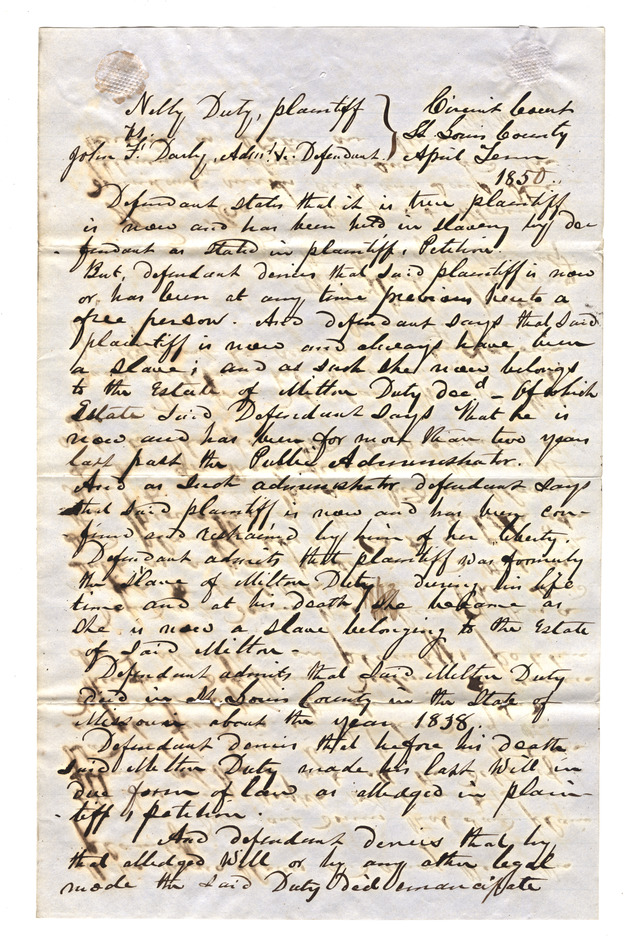 Nelly Duty, plaintiff } Circuit Court
vs. St Louis County
John F. Darby, Adm'r &c. Defendant April Term
1850.
Defendant states that it is true plaintiff
is now and has been held in slavery by de
fendant as stated in plaintiff, Petition.
But, defendant denies that said plaintiff is now
or has been at any time previous hereto a
free person. And defendant says that said
plaintiff is now and always have been
a slave; and as such she now belongs
to the Estate of Milton Duty decd - Of which
Estate said Defendant says that he is
now and has been for more than two years
last past the Public Administrator.
And as such administrator defendant says
that said plaintiff is now and has been con-
fined and restrained by him of her liberty.
Defendant admits that plaintiff was formerly
the slave of Milton Duty during his life
time and at his death she became as
she is now a slave belonging to the Estate
of said Milton -
Defendant admits that said Milton Duty
died in St. Louis County in the State of
Missouri about the year 1838.
Defendant denies that before his death
said Milton Duty made his last Will in
due form of law as alledged in plain-
tiff, petition.
And defendant denies that by
that alledged Will or by any other legal
mode the said Duty did emancipate